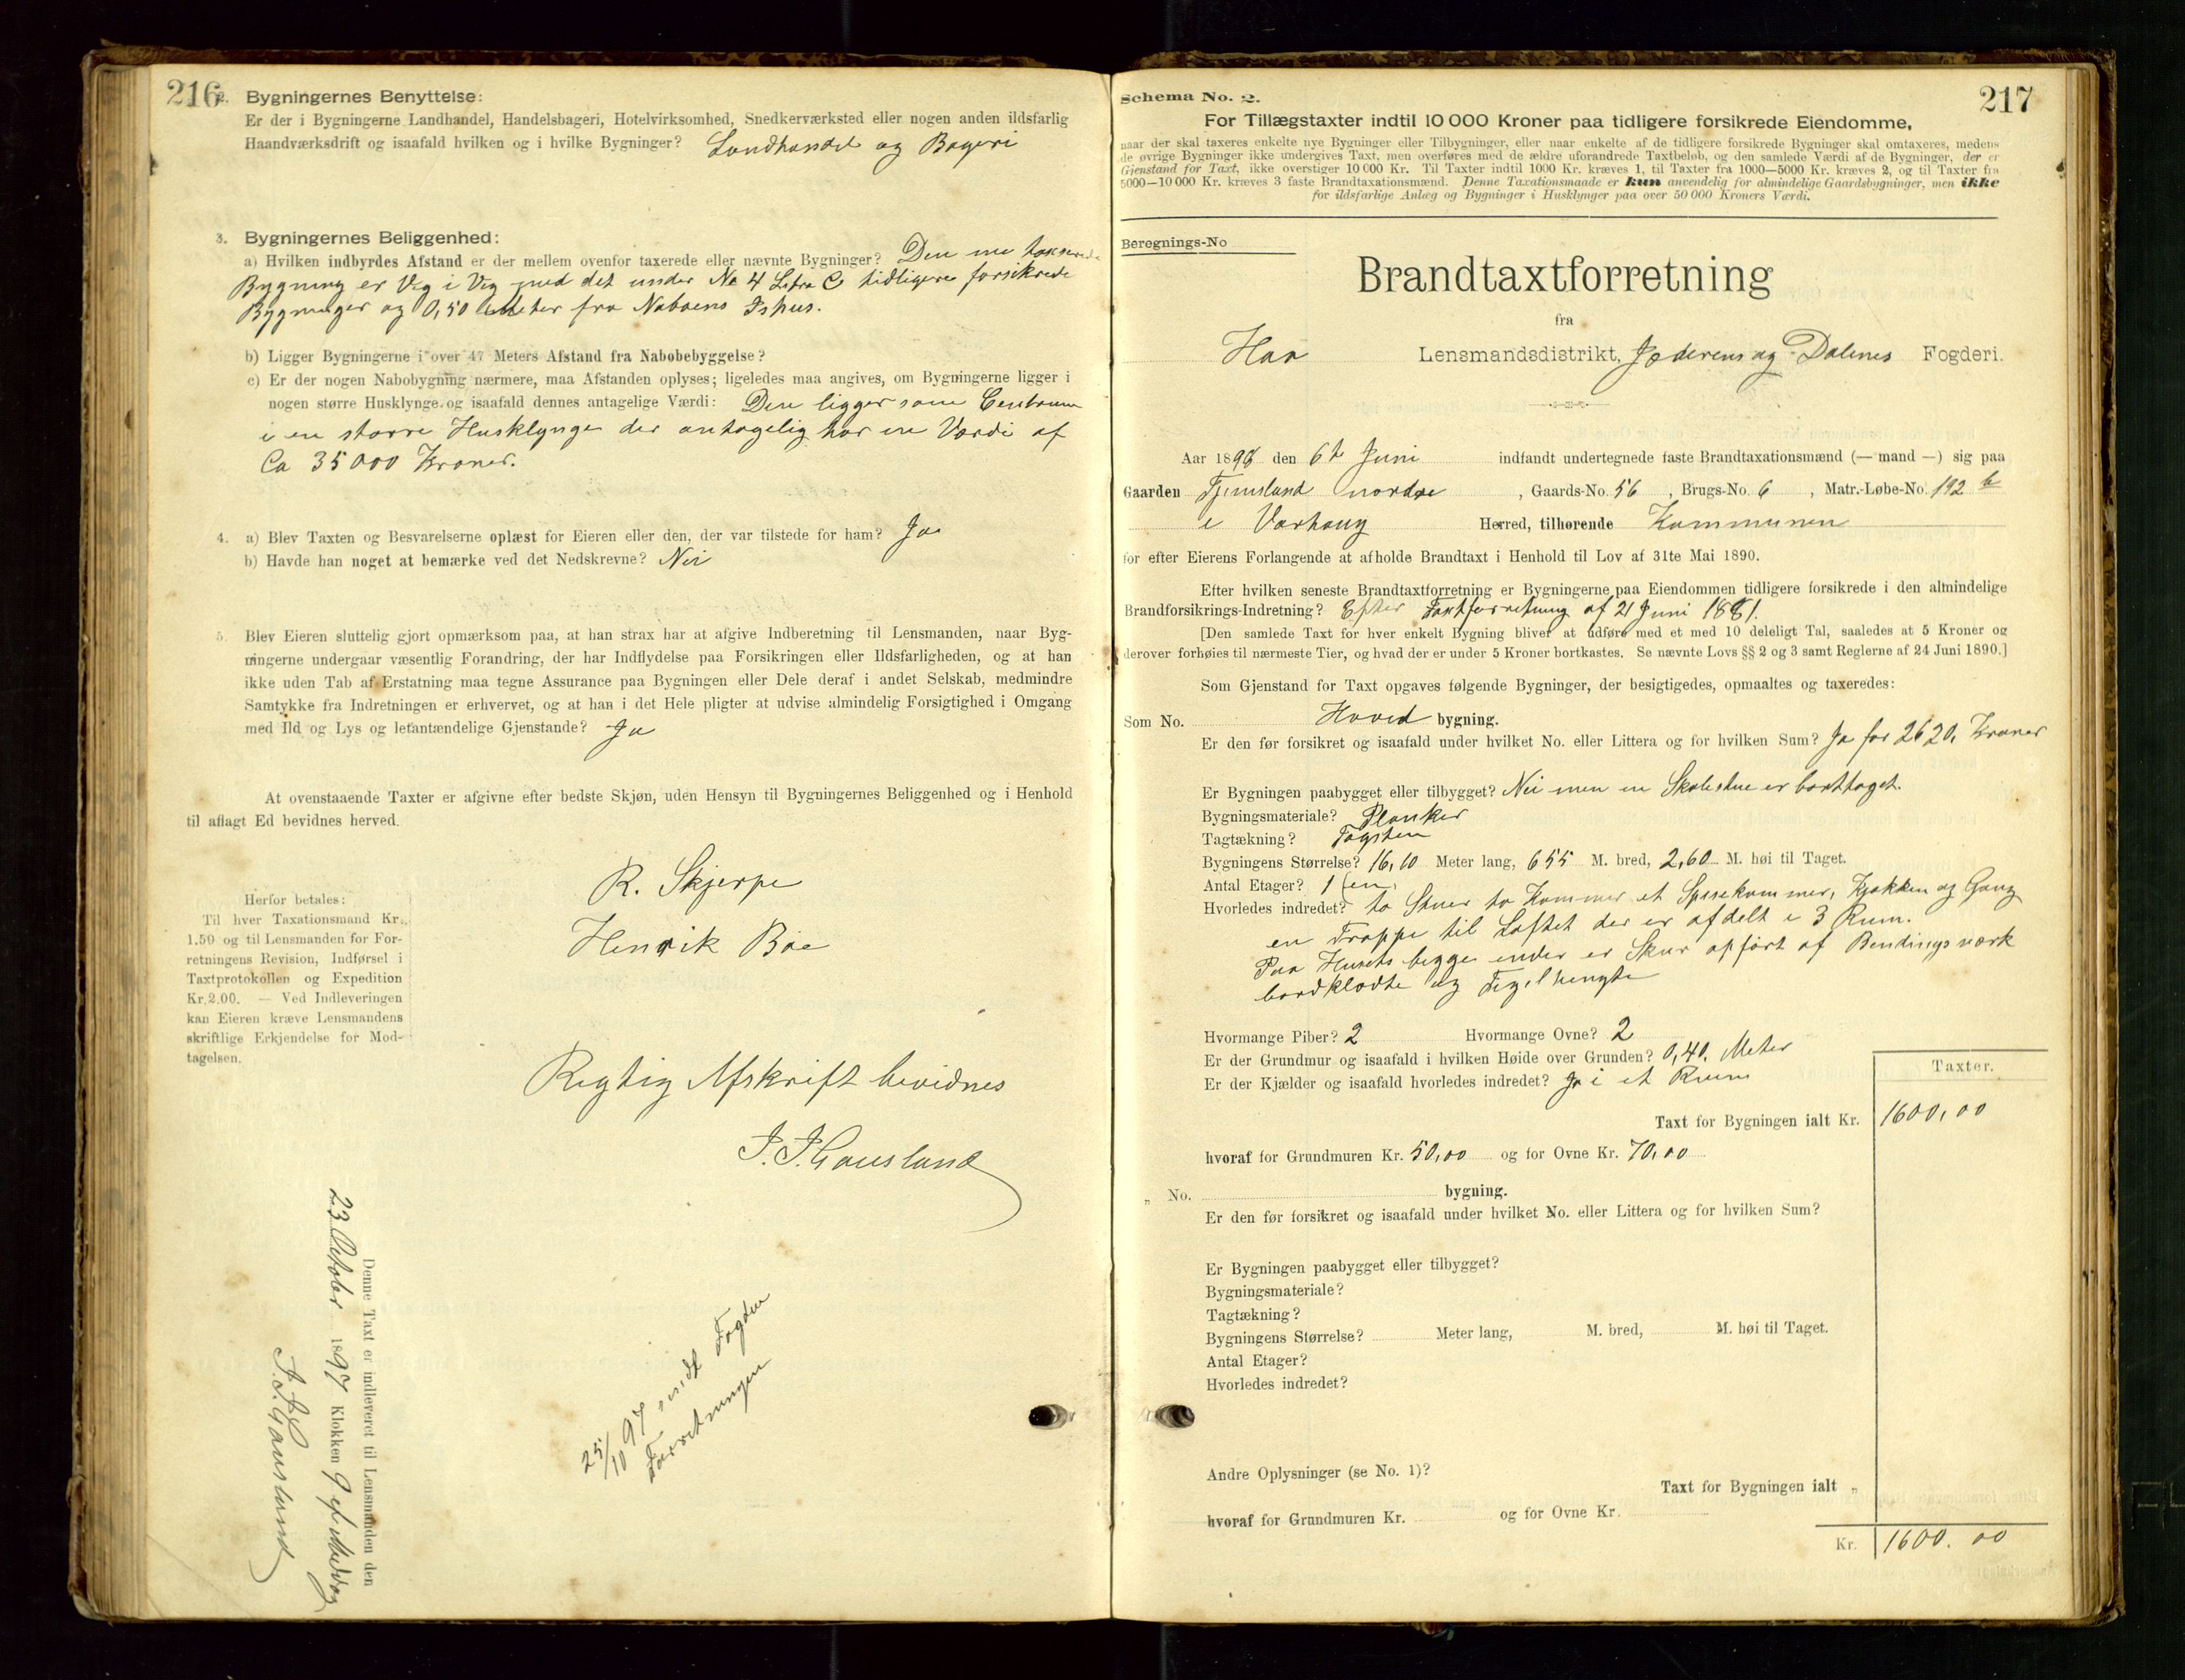 216
2. Bygningernes Benyttelse:
Er der i Bygningerne Landhandel, Handelsbageri, Hotelvirksomhed, Snedkerværksted eller nogen anden ildsfarlig
Haandværksdrift og isaafald hvilken og i hvilke Bygninger? Landhandel og Bageri
3. Bygningernes Beliggenhed:
a) Hvilken indbyrdes Afstand er der mellem ovenfor taxerede eller nævnte Bygninger? Den nu taxerede
Bygning er Veg i Veg med det under No 4 Litra C tidligere forsikrede
Bygninger og 0,50 Meter fra Naboens Ishus.
b) Ligger Bygningerne i over 47 Meters Afstand fra Nabobebyggelse?
c) Er der nogen Nabobygning nærmere, maa Afstanden oplyses; ligeledes maa angives, om Bygningerne ligger i
nogen større Husklynge og isaafald dennes antagelige Værdi: Den ligger som Centrum
i en større Husklynge der antagelig har en Værdi af
Ca 35000 Kroner.
4. a) Blev Taxten og Besvarelserne oplæst for Eieren eller den, der var tilstede for ham? Ja
b) Havde han noget at bemærke ved det Nedskrevne? Nei
5. Blev Eieren sluttelig gjort opmærksom paa, at han strax har at afgive Indberetning til Lensmanden, naar Byg-
ningerne undergaar væsentlig Forandring, der har Indflydelse paa Forsikringen eller Ildsfarligheden, og at han
ikke uden Tab af Erstatning maa tegne Assurance paa Bygningen eller Dele deraf i andet Selskab, medmindre
Samtykke fra Indretningen er erhvervet, og at han i det Hele pligter at udvise almindelig Forsigtighed i Omgang
med Ild og Lys og letantændelige Gjenstande? Ja
At ovenstaaende Taxter er afgivne efter bedste Skjøn, uden Hensyn til Bygningernes Beliggenhed og i Henhold
til aflagt Ed bevidnes herved.
R. Skjerpe
Henrik Bøe
Herfor betales:
Til hver Taxationsmand Kr.
1.50 og til Lensmanden for For-
retningens Revision, Indførsel i
Taxtprotokollen og Expedition
Kr. 2.00. — Ved Indleveringen
kan Eieren kræve Lensmandens
skriftlige Erkjendelse for Mod-
tagelsen.
Rigtig Afskrift bevidnes
J. J. Gausland
Denne Taxt er indleveret til Lensmanden den
23 October 1897 Klokken 9 ef Middag
J. J. Gausland
25/10 97 sendt Fogden
Forretningen
Schema No. 2.
217
For Tillægstaxter indtil 10 000 Kroner paa tidligere forsikrede Eiendomme,
naar der skal taxeres enkelte nye Bygninger eller Tilbygninger, eller naar enkelte af de tidligere forsikrede Bygninger skal omtaxeres, medens
de øvrige Bygninger ikke undergives Taxt, men overføres med de ældre uforandrede Taxtbeløb, og den samlede Værdi af de Bygninger, der er
Gjenstand for Taxt, ikke overstiger 10 000 Kr. Til Taxter indtil 1000 Kr. kræves 1, til Taxter fra 1000—5000 Kr. kræves 2, og til Taxter fra
5000—10 000 Kr. kræves 3 faste Brandtaxationsmænd. Denne Taxationsmaade er kun anvendelig for almindelige Gaardsbygninger, men ikke
for ildsfarlige Anlæg og Bygninger i Husklynger paa over 50 000 Kroners Værdi.
Beregnings-No
Brandtaxtforretning
fra
Haa Lensmandsdistrikt, Jæderens og Dalenes Fogderi.
Aar 1898 den 6te Juni indfandt undertegnede faste Brandtaxationsmænd (— mand —) sig paa
Gaarden Tjemsland nordre, Gaards-No. 56, Brugs-No. 6, Matr.-Løbe-No. 192 b
i Varhaug Herred, tilhørende Kommunen
for efter Eierens Forlangende at afholde Brandtaxt i Henhold til Lov af 31te Mai 1890.
Efter hvilken seneste Brandtaxtforretning er Bygningerne paa Eiendommen tidligere forsikrede i den almindelige
Brandforsikrings-Indretning? Efter Taxtforretning af 21 Juni 1881.
[Den samlede Taxt for hver enkelt Bygning bliver at udføre med et med 10 deleligt Tal, saaledes at 5 Kroner og
derover forhøies til nærmeste Tier, og hvad der er under 5 Kroner bortkastes. Se nævnte Lovs §§ 2 og 3 samt Reglerne af 24 Juni 1890.]
Som Gjenstand for Taxt opgaves følgende Bygninger, der besigtigedes, opmaaltes og taxeredes:
Som No. Hoved bygning.
Er den før forsikret og isaafald under hvilket No. eller Littera og for hvilken Sum? Ja for 2620, Kroner
Er Bygningen paabygget eller tilbygget? Nei men en Skolestue er borttaget.
Bygningsmateriale? Planker
Tagtækning? Tagsten
Bygningens Størrelse? 16,10 Meter lang, 655 M. bred, 2,60 M. høi til Taget.
Antal Etager? 1 (en)
Hvorledes indredet? to Stuer to Kammer et Spisekammer, Kjøkken og Gang
en Trappe til Loftet der er afdelt i 3 Rum.
Paa Husets begge ender er Skur opført af Bindingsværk
bordklædte og Teglhengte
Hvormange Piber? 2 Hvormange Ovne? 2
Er der Grundmur og isaafald i hvilken Høide over Grunden? 0,40, Meter
Er der Kjælder og isaafald hvorledes indredet? Ja i et Rum
Taxter.
Taxt for Bygningen ialt Kr. 1600,00
hvoraf for Grundmuren Kr. 50,00 og for Ovne Kr. 70,00
„ No. bygning.
Er den før forsikret og isaafald under hvilket No. eller Littera og for hvilken Sum?
Er Bygningen paabygget eller tilbygget?
Bygningsmateriale?
Tagtækning?
Bygningens Størrelse? Meter lang, M. bred, M. høi til Taget.
Antal Etager?
Hvorledes indredet?
Andre Oplysninger (se No. 1)?
Taxt for Bygningen ialt „
hvoraf for Grundmuren Kr. og for Ovne Kr.
Kr. 1600. 00